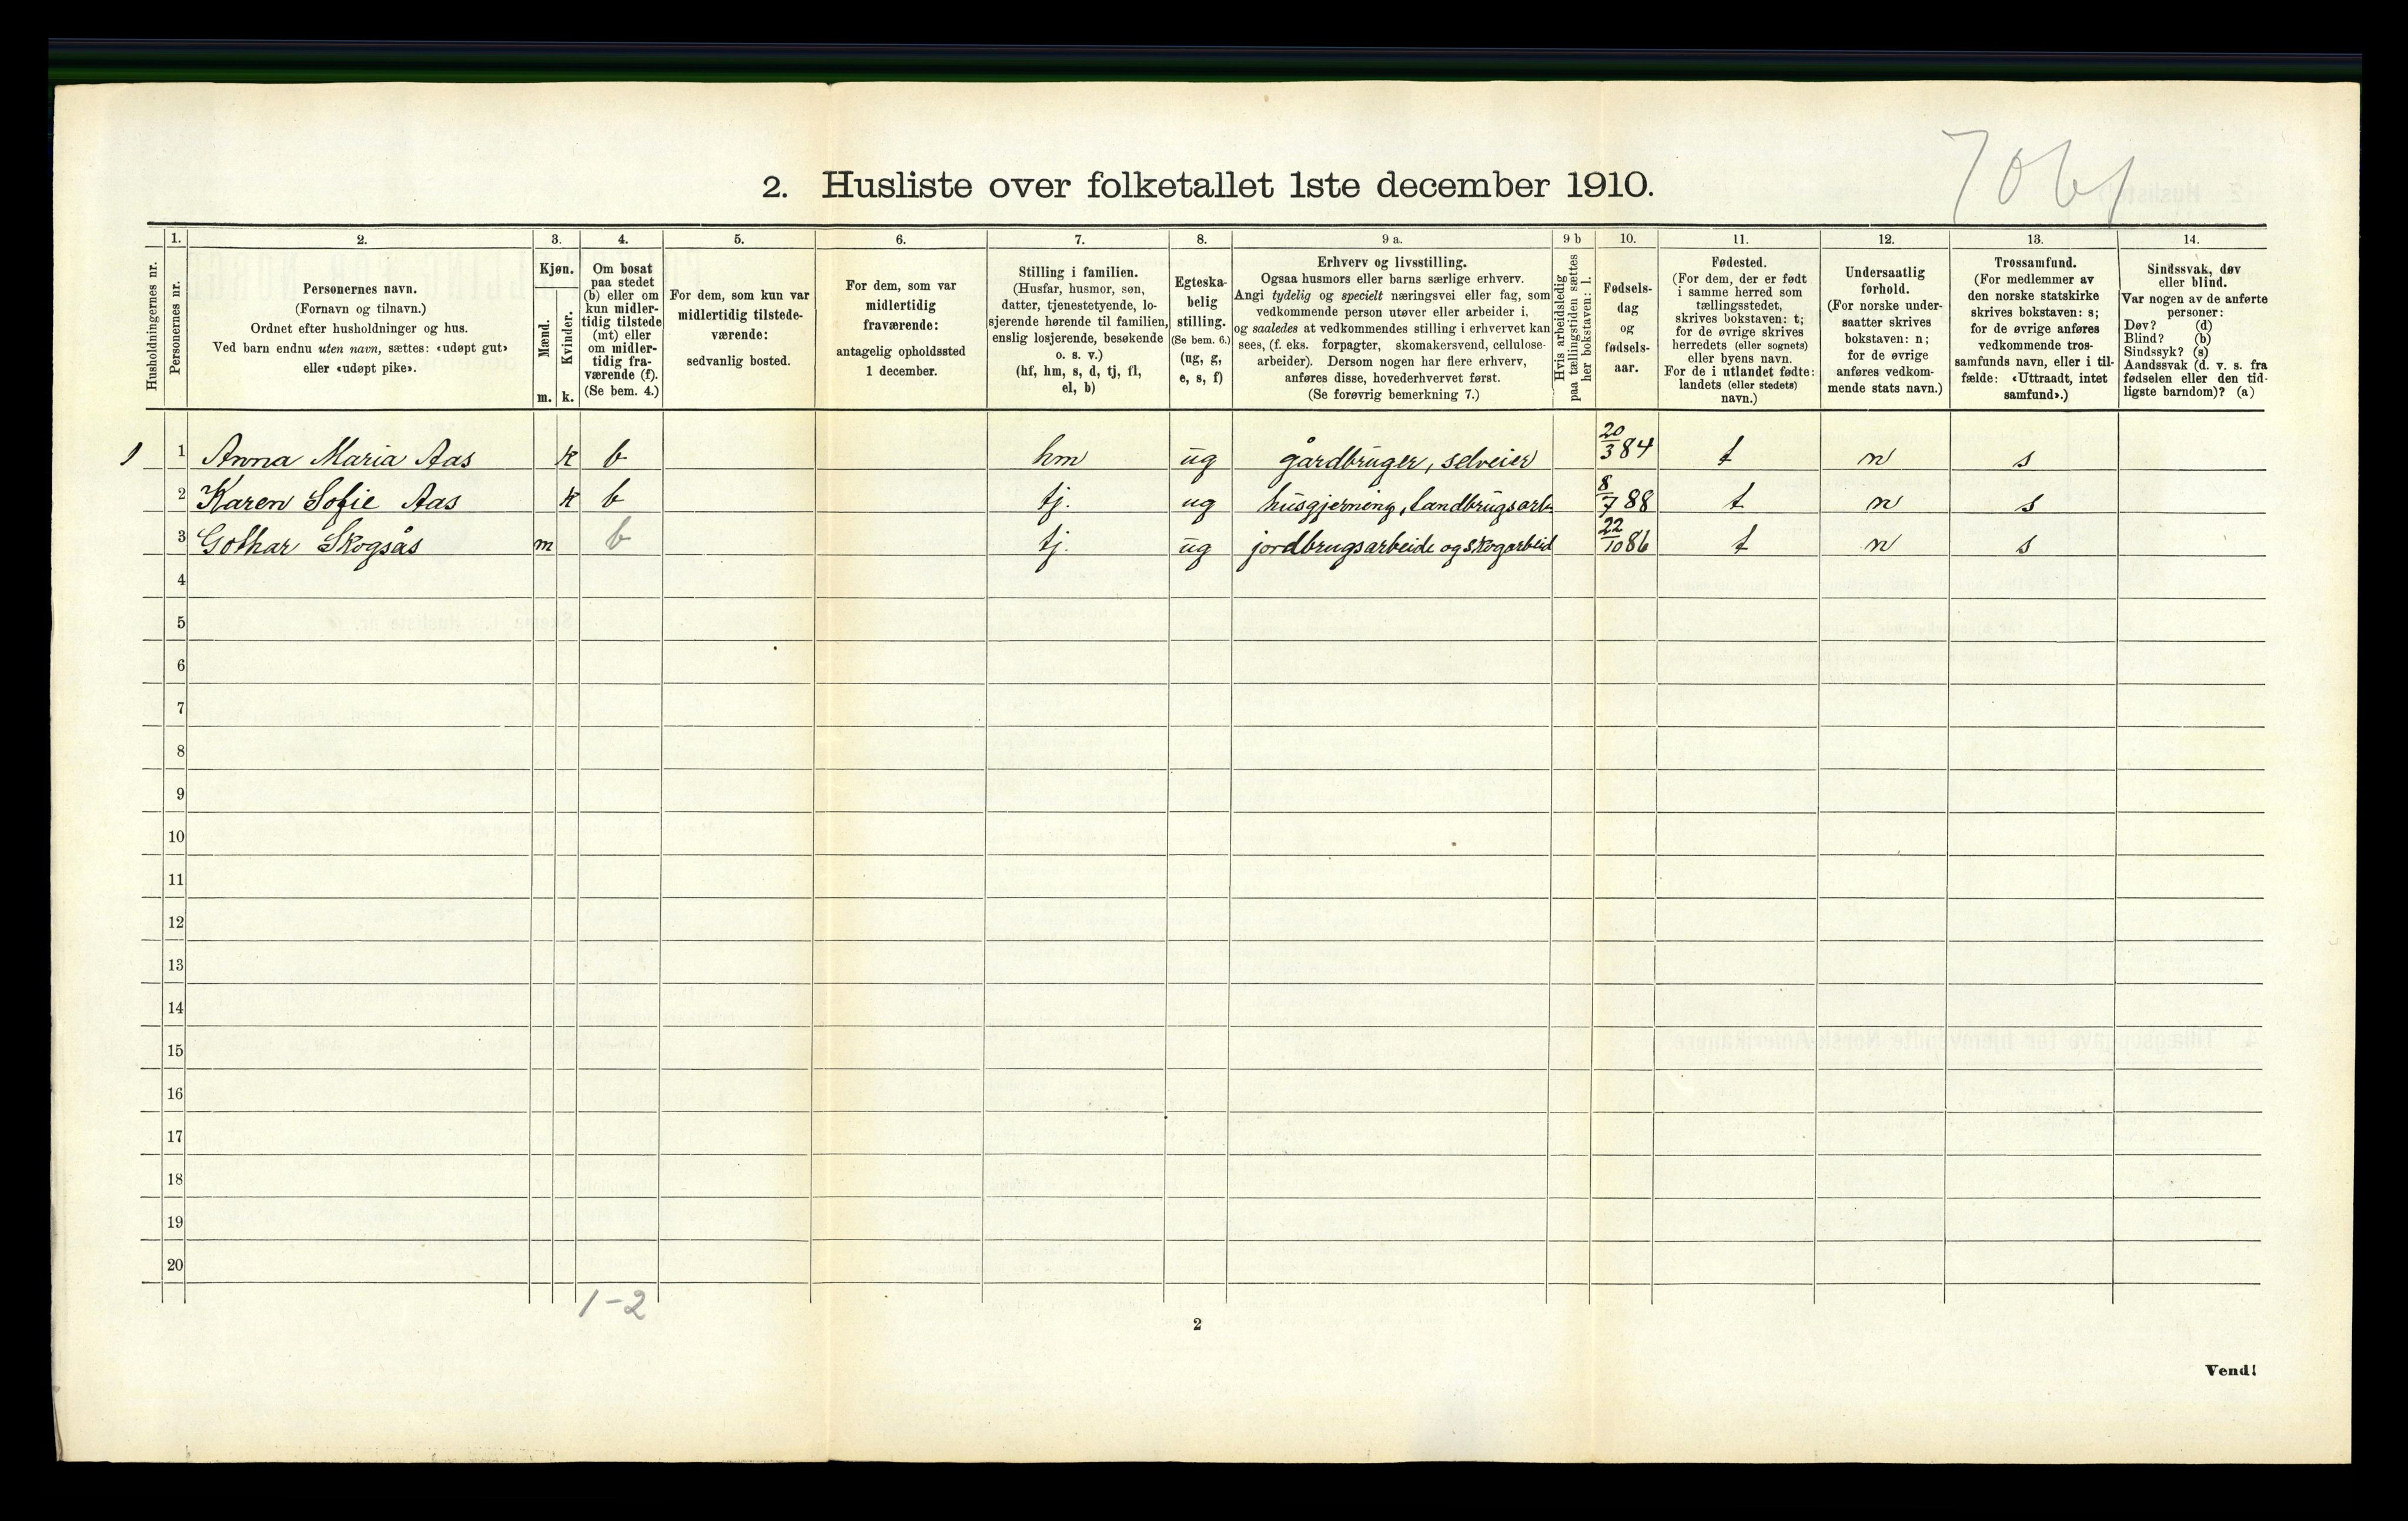 2. Husliste over folketallet 1ste december 1910.
Husholdningernes nr.
1.
Personernes nr.
2.
Personernes navn.
(Fornavn og tilnavn.)
Ordnet efter husholdninger og hus.
Ved barn endnu uten navn, sættes: «udøpt gut»
eller «udøpt pike».
3.
Kjøn.
Mænd.
Kvinder.
m. k.
4.
Om bosat
paa stedet
(b) eller om
kun midler-
tidig tilstede
(mt) eller
om midler-
tidig fra-
værende (f).
(Se bem. 4.)
5.
For dem, som kun var
midlertidig tilstede-
værende:
sedvanlig bosted.
6.
For dem, som var
midlertidig
fraværende:
antagelig opholdssted
1 december.
7.
Stilling i familien.
(Husfar, husmor, søn,
datter, tjenestetyende, lo-
sjerende hørende til familien,
enslig losjerende, besøkende
o. s. v.)
(hf, hm, s, d, tj, fl,
el, b)
8.
Egteska-
belig
stilling.
(Se bem. 6.)
(ug, g,
e, s, f)
9 a.
Erhverv og livsstilling.
Ogsaa husmors eller barns særlige erhverv.
Angi tydelig og specielt næringsvei eller fag, som
vedkommende person utøver eller arbeider i,
og saaledes at vedkommendes stilling i erhvervet kan
sees, (f. eks. forpagter, skomakersvend, cellulose-
arbeider). Dersom nogen har flere erhverv,
anføres disse, hovederhvervet først.
(Se forøvrig bemerkning 7.)
9 b
Hvis arbeidsledig
paa tællingstiden sættes
her bokstaven: l.
10.
Fødsels-
dag
og
fødsels-
aar.
11.
Fødested.
(For dem, der er født
i samme herred som
tællingsstedet,
skrives bokstaven: t;
for de øvrige skrives
herredets (eller sognets)
eller byens navn.
For de i utlandet fødte:
landets (eller stedets)
navn.)
12.
Undersaatlig
forhold.
(For norske under-
saatter skrives
bokstaven: n;
for de øvrige
anføres vedkom-
mende stats navn.)
13.
Trossamfund.
(For medlemmer av
den norske statskirke
skrives bokstaven: s;
for de øvrige anføres
vedkommende tros-
samfunds navn, eller i til-
fælde: «Uttraadt, intet
samfund».)
14.
Sindssvak, døv
eller blind.
Var nogen av de anførte
personer:
Døv? (d)
Blind? (b)
Sindssyk? (s)
Aandssvak (d. v. s. fra
fødselen eller den tid-
ligste barndom)? (a)
1 1 Anna Maria Aas k b hm ug gårdbruger, selveier 20/3 84 t n s
2 Karen Sofie Aas k b tj. ug husgjerning, landbrugsarb. 8/7 88 t n s
3 Gothar Skogsås m b tj. ug jordbrugsarbeide og skogarbeid 22/10 86 t n s
4
5
6
7
8
9
10
11
12
13
14
15
16
17
18
19
20
1-2
2
Vend!